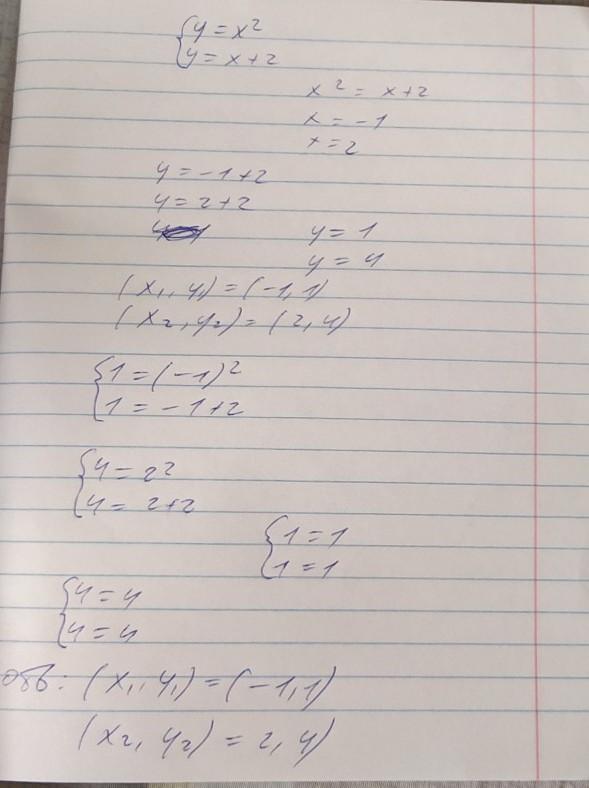 {y = x²
{y = x+2
x² = x+2
x = -1
x = 2
y = -1+2
y = 2+2
y = 1
y = 4
(x₁, y₁) = (-1, 1)
(x₂, y₂) = (2, 4)
{1 = (-1)²
{1 = -1+2
{4 = 2²
{4 = 2+2
{1 = 1
{1 = 1
{4 = 4
{4 = 4
(x₁, y₁) = (-1, 1)
(x₂, y₂) = 2, 4)